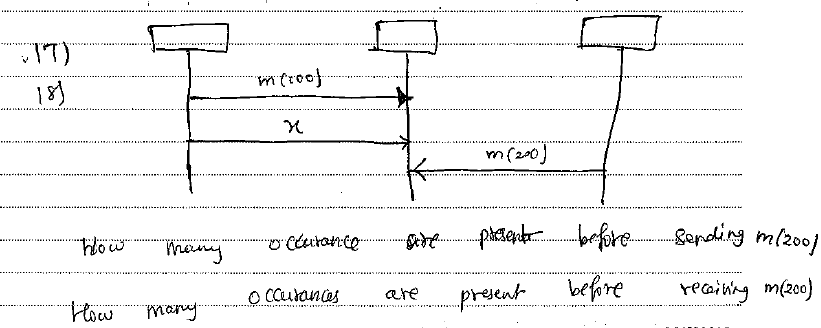 17)
18)
m(100)
x
m(200)
How many occurance are present before sending m(200)
How many occurances are present before receiving m(200)